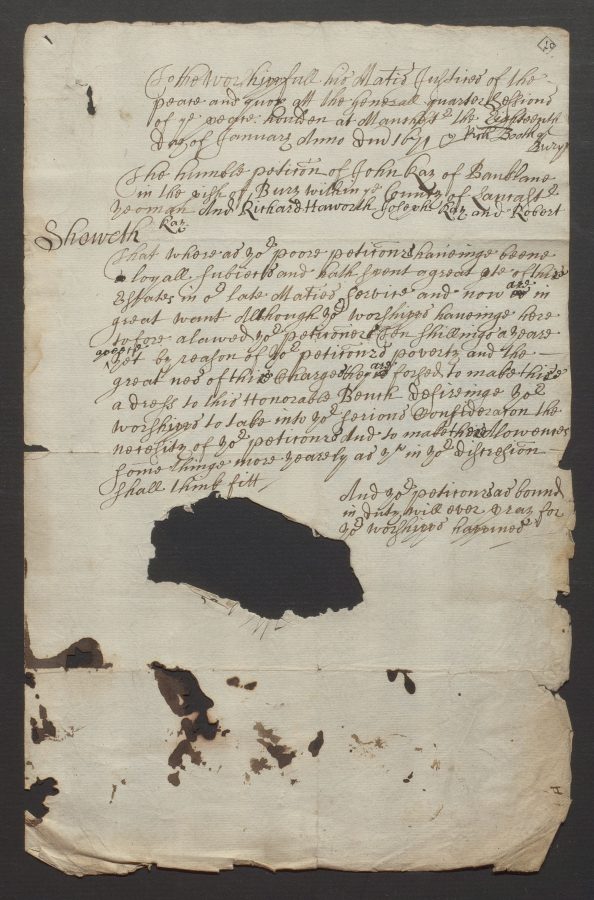 To the Worshipfull his Maties Justices of the
peace and quor att the Generall quarter Sessions
of ye peace houlden at Manchestr the Eighteenth
Day of January Anno Dni 1671
Rich Booth of
Bury
The humble peticon of John Kay of Baublane
in the pish of Bury within ye County of Lancastr
yeoman And Richard Haworth Joseph Kay and Robert
Kay
Sheweth
That where as yor poore peticonrs haveinge beene
loyall Subiects and hath spent a great pte of their
Estates in or late Maties Service and now are in
great want Although yor worshipps haveinge here
tofore alowed yor peticoners Ten shillings a yeare
yet by reason of yor peticonrs poverty and the
great nes of their Charge are forsed to make this
a dress to this Honorable Bench desireinge yor
worshipps to take into yor serious Consideration the
necesity of yor peticonrs And to make their Alowences
some thinge more yearely as in yor discresion
shall think fitt
And yor peticonrs as bound
in duty will ever pray for
yor worshipps happines